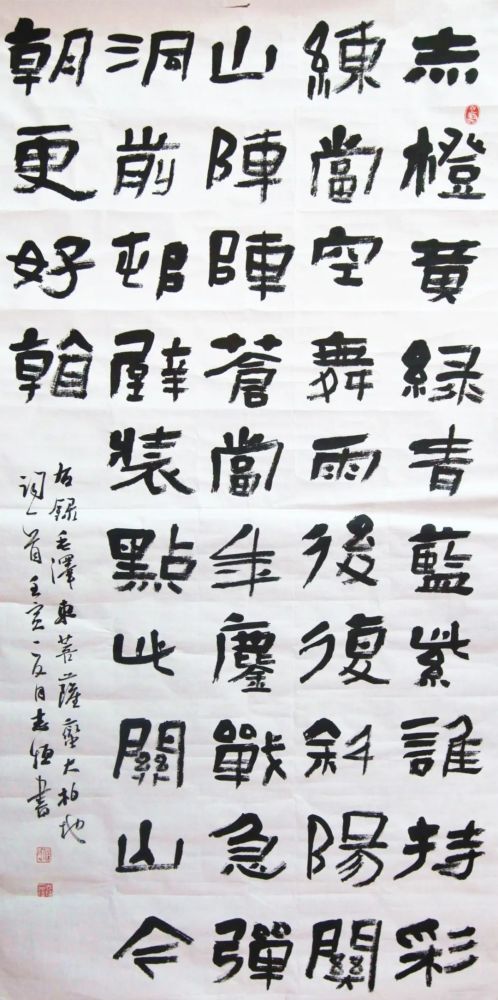 赤橙黄綠青藍紫誰持彩
練當空舞雨後復斜陽關
山陣陣蒼當年鏖戰急彈
洞前邨壁裝點此關山今
朝更好看
右錄毛澤東菩薩蠻大柏地
詞一首壬寅月志恒書